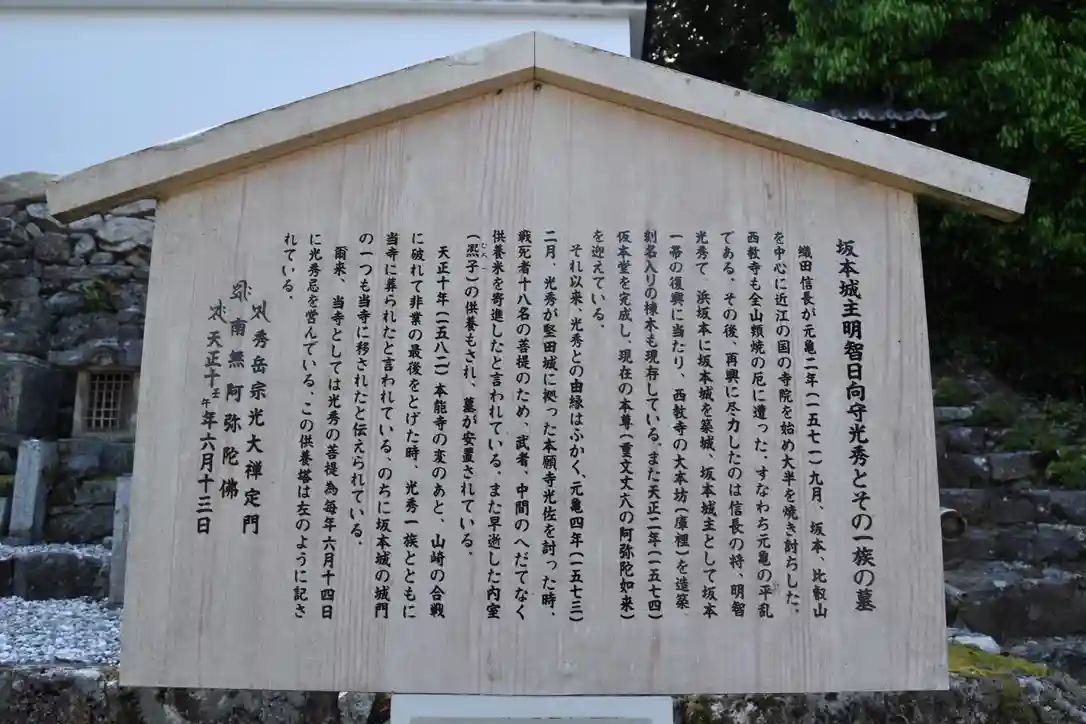 坂本城主明智日向守光秀とその一族の墓
織田信長が元亀二年(一五七一)九月、坂本、比叡山
を中心に近江の国の寺院を始め大半を焼き討ちした。
西教寺も全山類焼の厄に遭った。すなわち元亀の平乱
である。その後、再興に尽力したのは信長の将、明智
光秀で、浜坂本に坂本城を築城、坂本城主として坂本
一帯の復興に当たり、西教寺の大本坊(庫裡)を造築
刻名入りの棟木も現存している。また天正二年(一五七四)
仮本堂を完成し、現在の本尊(重文丈六の阿弥陀如来)
を迎えている。
それ以来、光秀との由縁はふかく、元亀四年(一五七三)
二月、光秀が堅田城に拠った本願寺光佐を討った時、
戦死者十八名の菩提のため、武者、中間のへだてなく
供養米を寄進したと言われている。また早逝した内室
(凞子)の供養もされ、墓が安置されている。
天正十年(一五八二)本能寺の変のあと、山崎の合戦
に破れて非業の最後をとげた時、光秀一族とともに
当寺に葬られたと言われている。のちに坂本城の城門
の一つも当寺に移されたと伝えられている。
爾来、当寺としては光秀の菩提為毎年六月十四日
に光秀忌を営んでいる、この供養塔は左のように記さ
れている。
秀岳宗光大禅定門
南無阿弥陀佛
天正十壬午年六月十三日